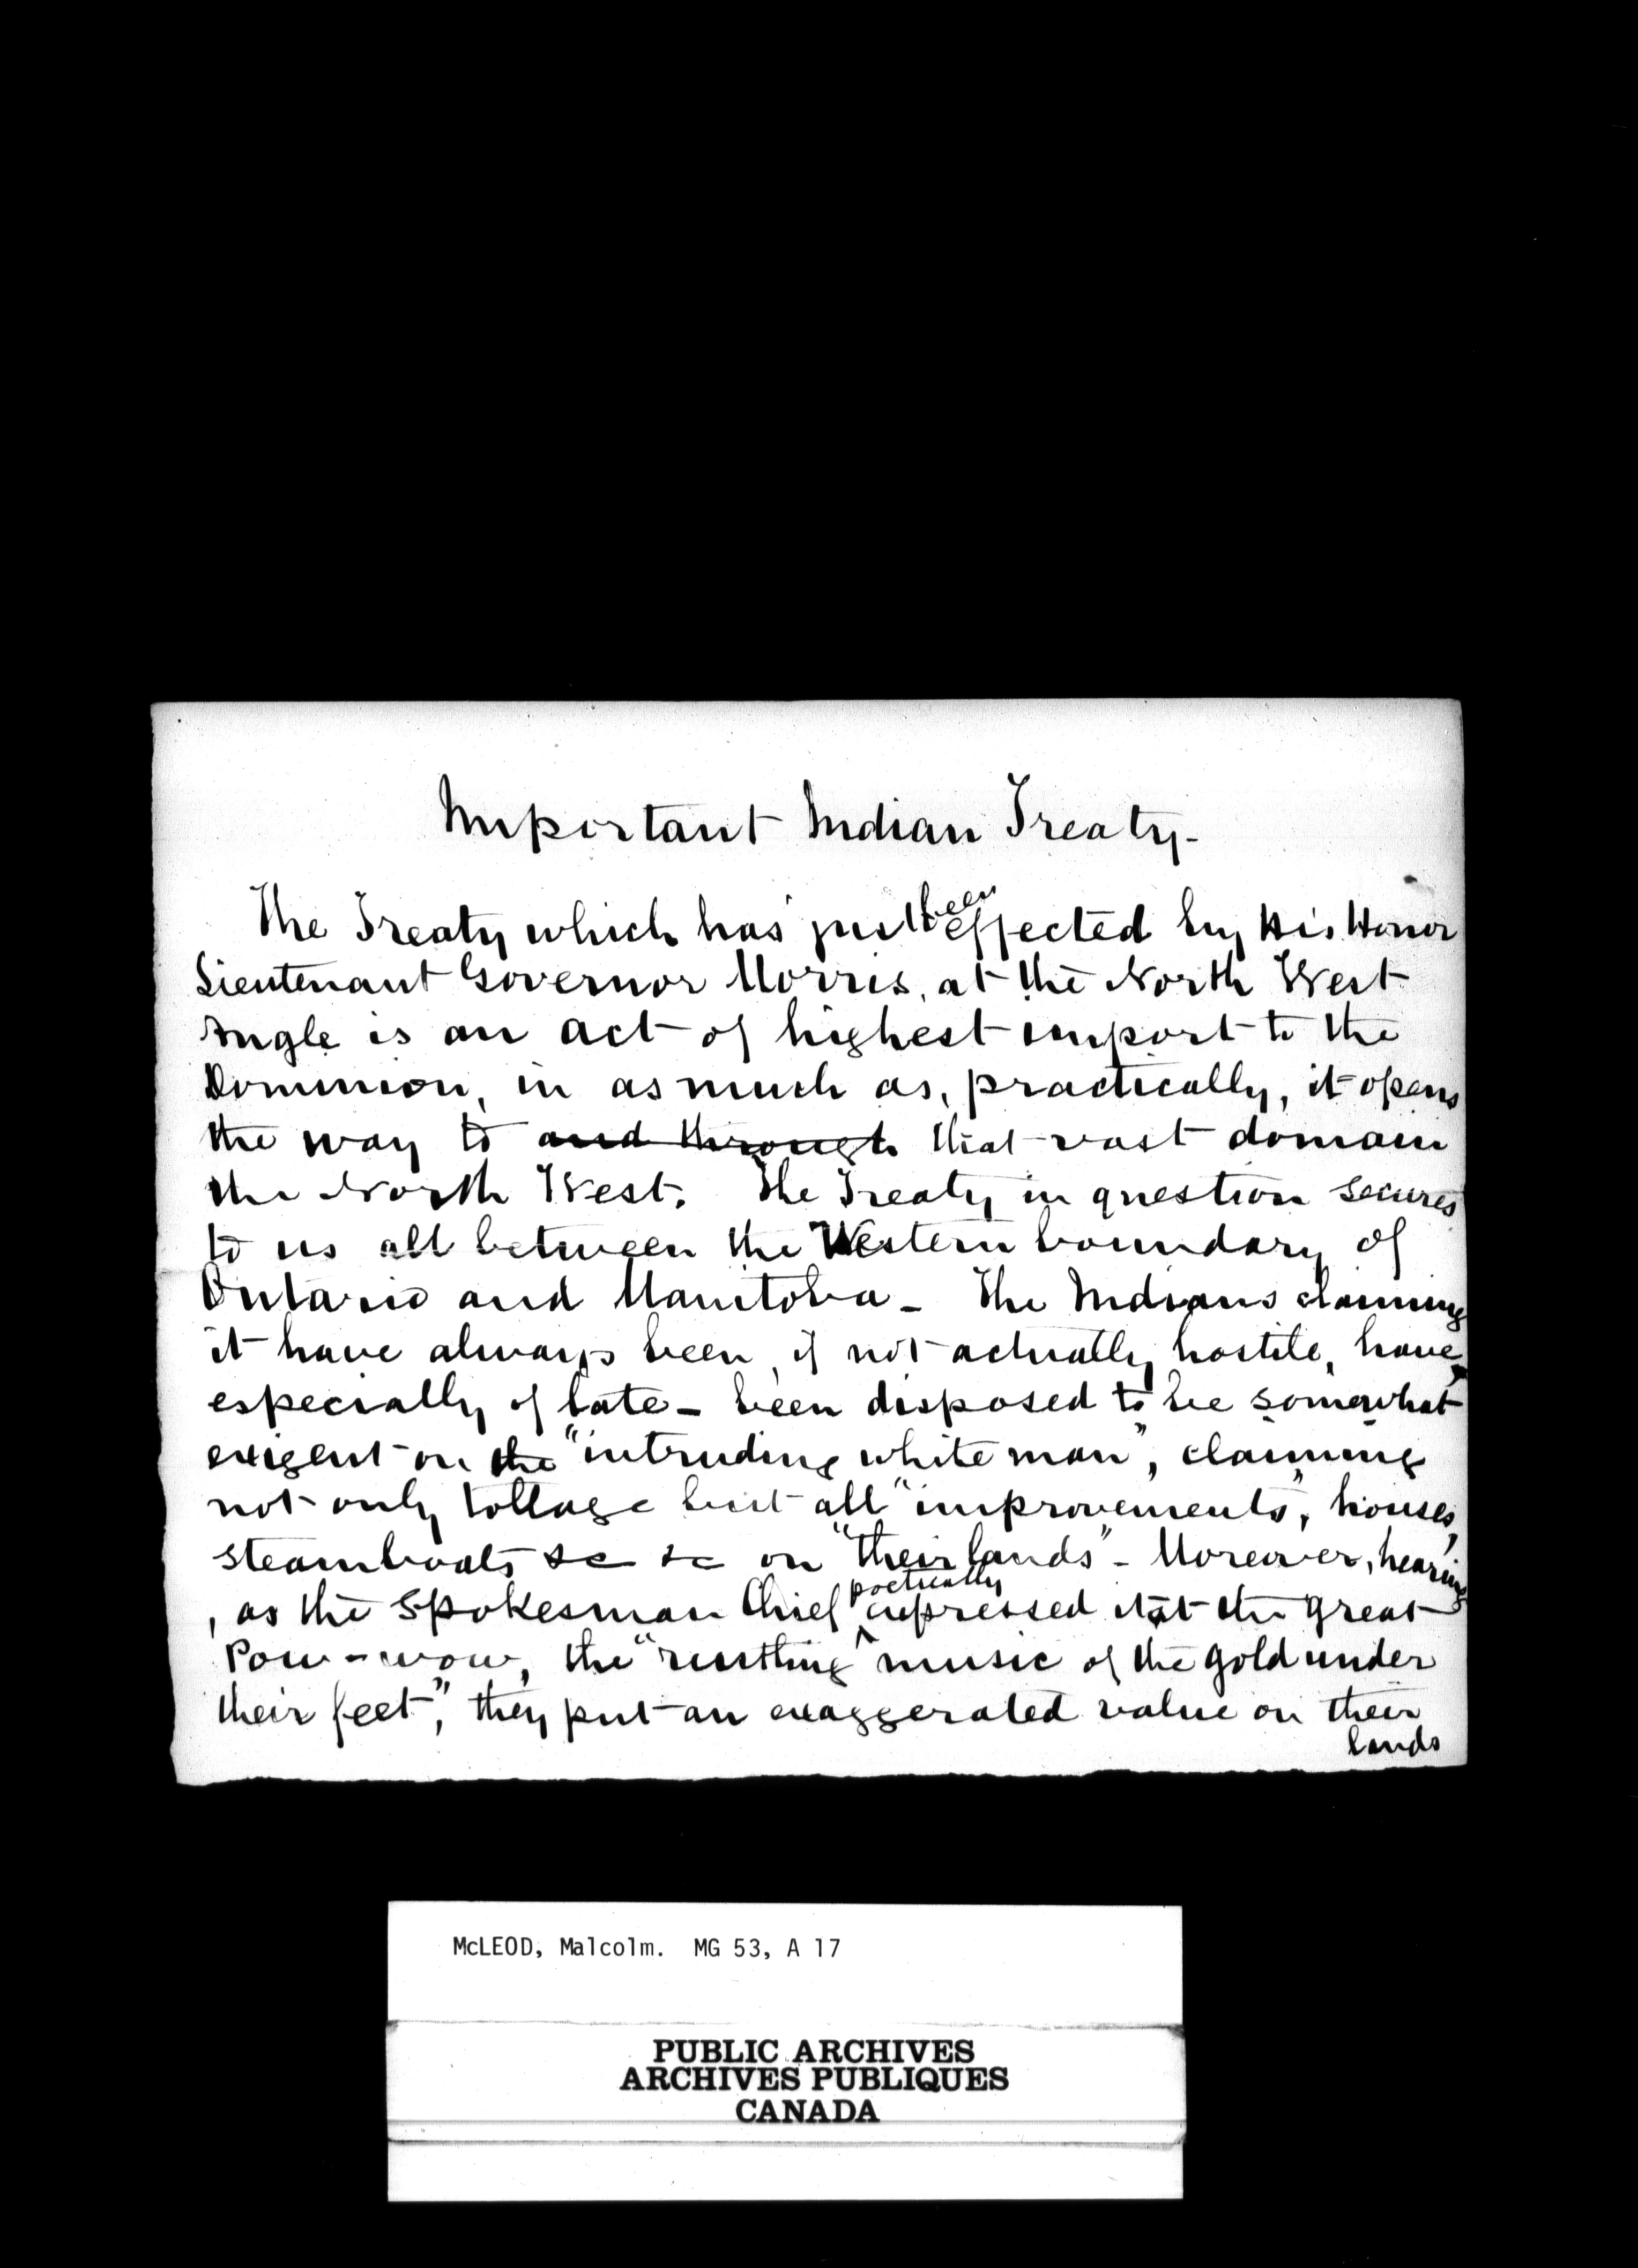 Important Indian Treaty -
The Treaty which has just been effected by His Honor
Lieutenant Governor Morris, at the North West
Angle is an act of highest import to the
Dominion, in as much as, practically, it opens
the way to and through that vast domain
the North West. The Treaty in question secures
to us all between the Western boundary of
Ontario and Manitoba - The Indians claiming
it have always been, if not actually hostile, have,
especially of late - been disposed to be somewhat
exigent on the "intruding white man", claiming
not only tollage but all "improvements", houses,
steamboats &c &c on "their lands" - Moreover, hearing
, as the Spokesman Chief poetically expressed it at the great
Pow-wow, the "rustling music of the gold under
their feet", they put an exaggerated value on their
lands
McLEOD, Malcolm. MG 53, A 17
PUBLIC ARCHIVES
ARCHIVES PUBLIQUES
CANADA